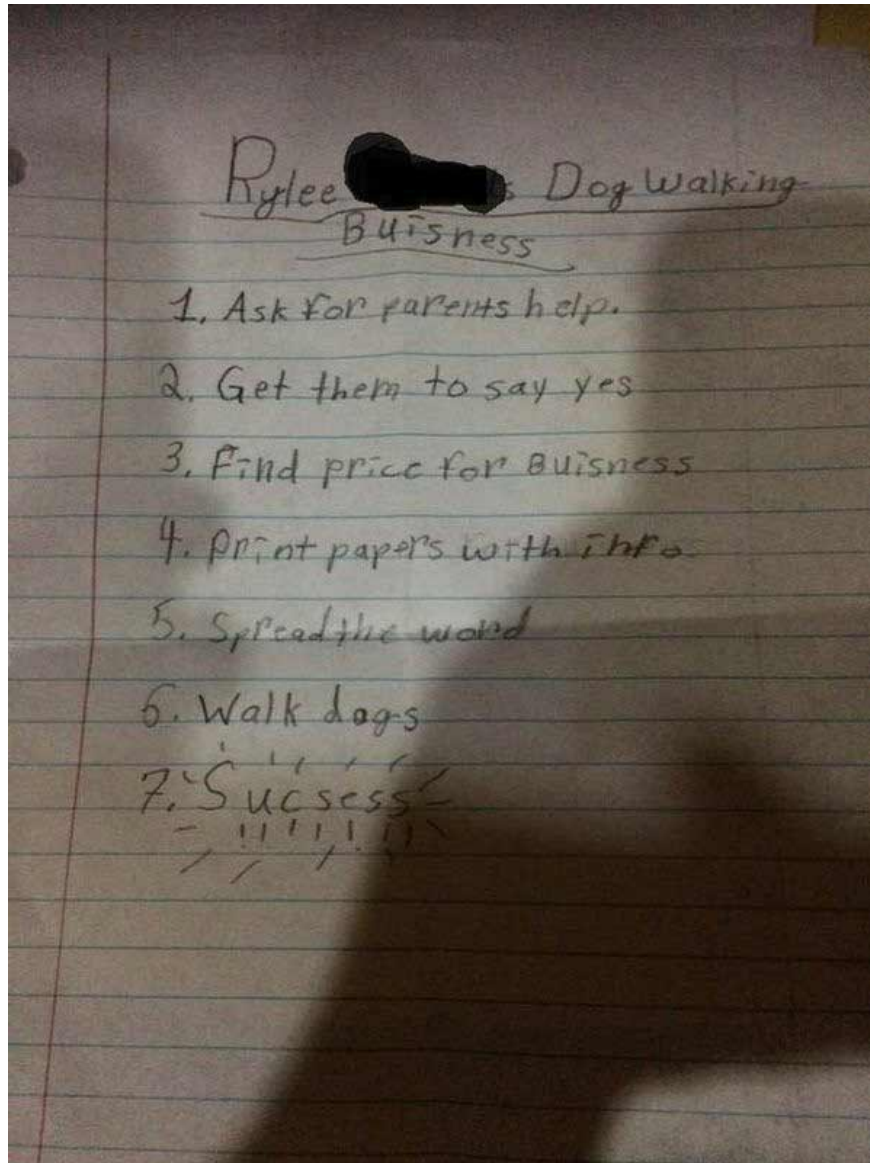 Rylee s Dog Walking
Buisness
1. Ask for parents help.
2. Get them to say yes
3. Find price for Buisness
4. print papers with info.
5. Spread the word
6. Walk dogs
7. Sucsess